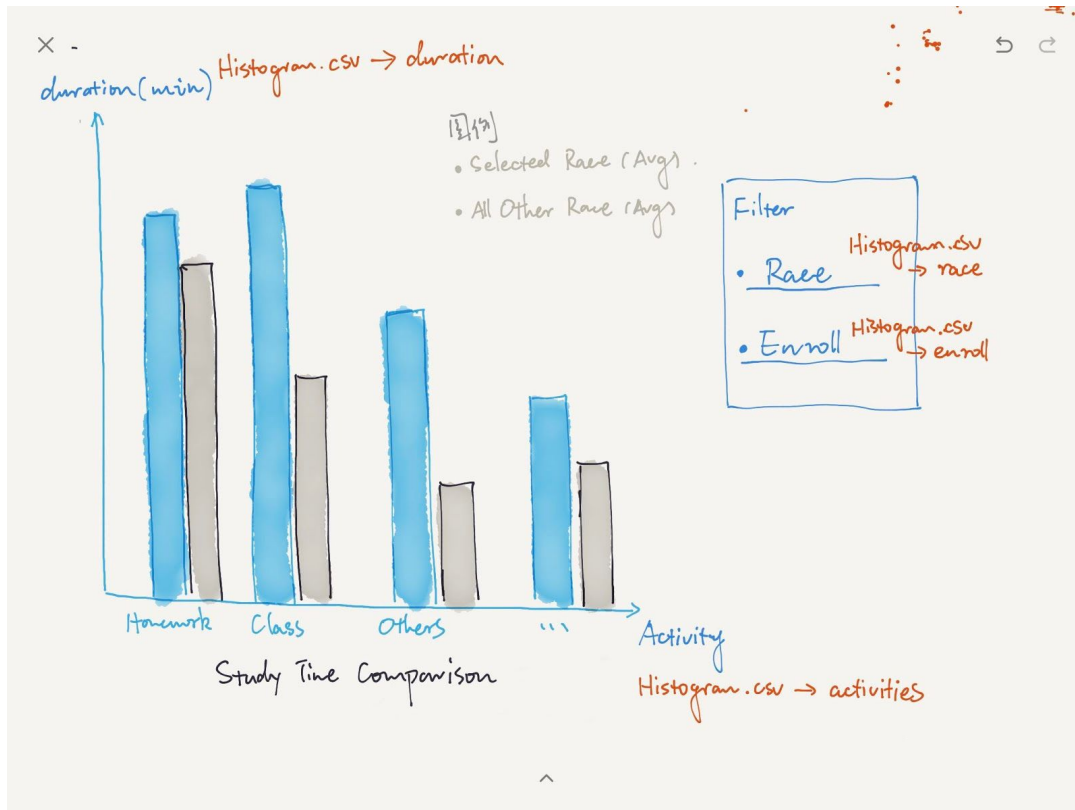 duration(min)
Histogram.csv → duration
图例
• Selected Race (Avg).
• All Other Race (Avg)
Filter
• Race
Histogram.csv
→ race
• Enroll
Histogram.csv
→ enroll
Homework
Class
Others
...
Activity
Study Time Comparison
Histogram.csv → activities